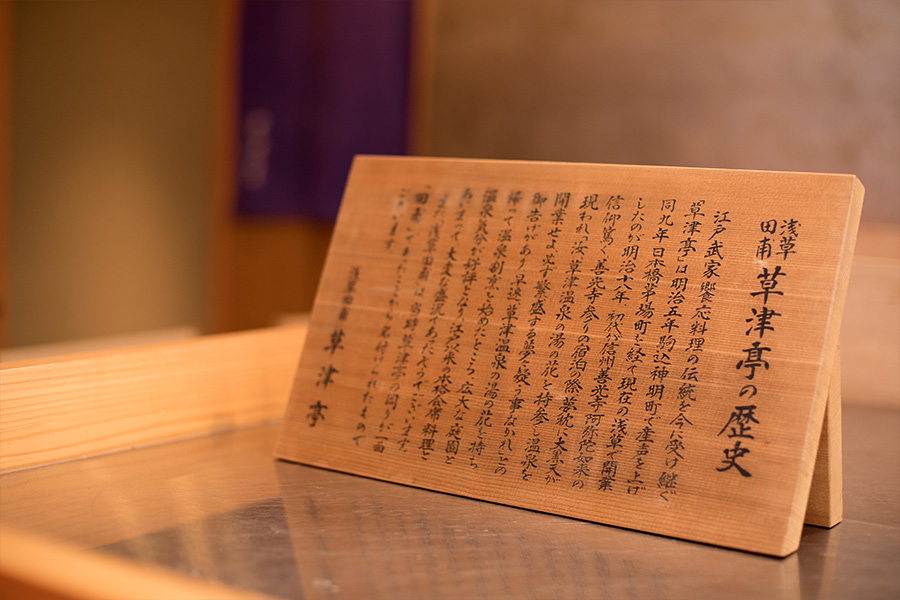 浅草
田甫
草津亭の歴史
江戸武家饗応料理の伝統を今に受け継ぐ
「草津亭」は明治五年駒込神明町で産声を上げ
同九年日本橋茅場町を経て現在の浅草で開業
したのが明治十八年 初代が信州善光寺阿弥陀如来の
信仰篤く、善光寺参りの宿泊の際 夢枕に大黒天が
現われ、「汝、草津温泉の湯の花を持参し温泉を
開業せよ、必ず繁盛する夢々疑う事なかれ」との
御告げがあり、早速、草津温泉の湯の花を持ち
帰って温泉割烹を始めたところ、広大な庭園と
温泉気分が評判となり、江戸以来の会席料理と
あいまって大変な盛況であったそうでございます。
また、浅草田甫は当時草津亭の周りが一面
田甫であったことから名付けられたもので
ございます。
浅草田甫
草津亭